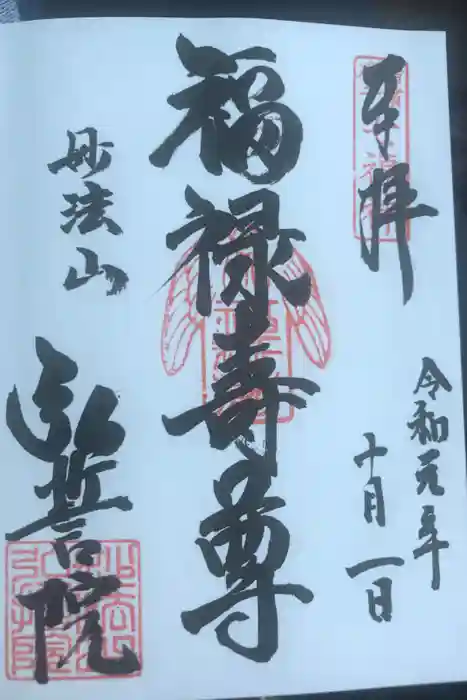 奉拝
令和元年
十月一日
福禄寿尊
妙法山
弘誓院